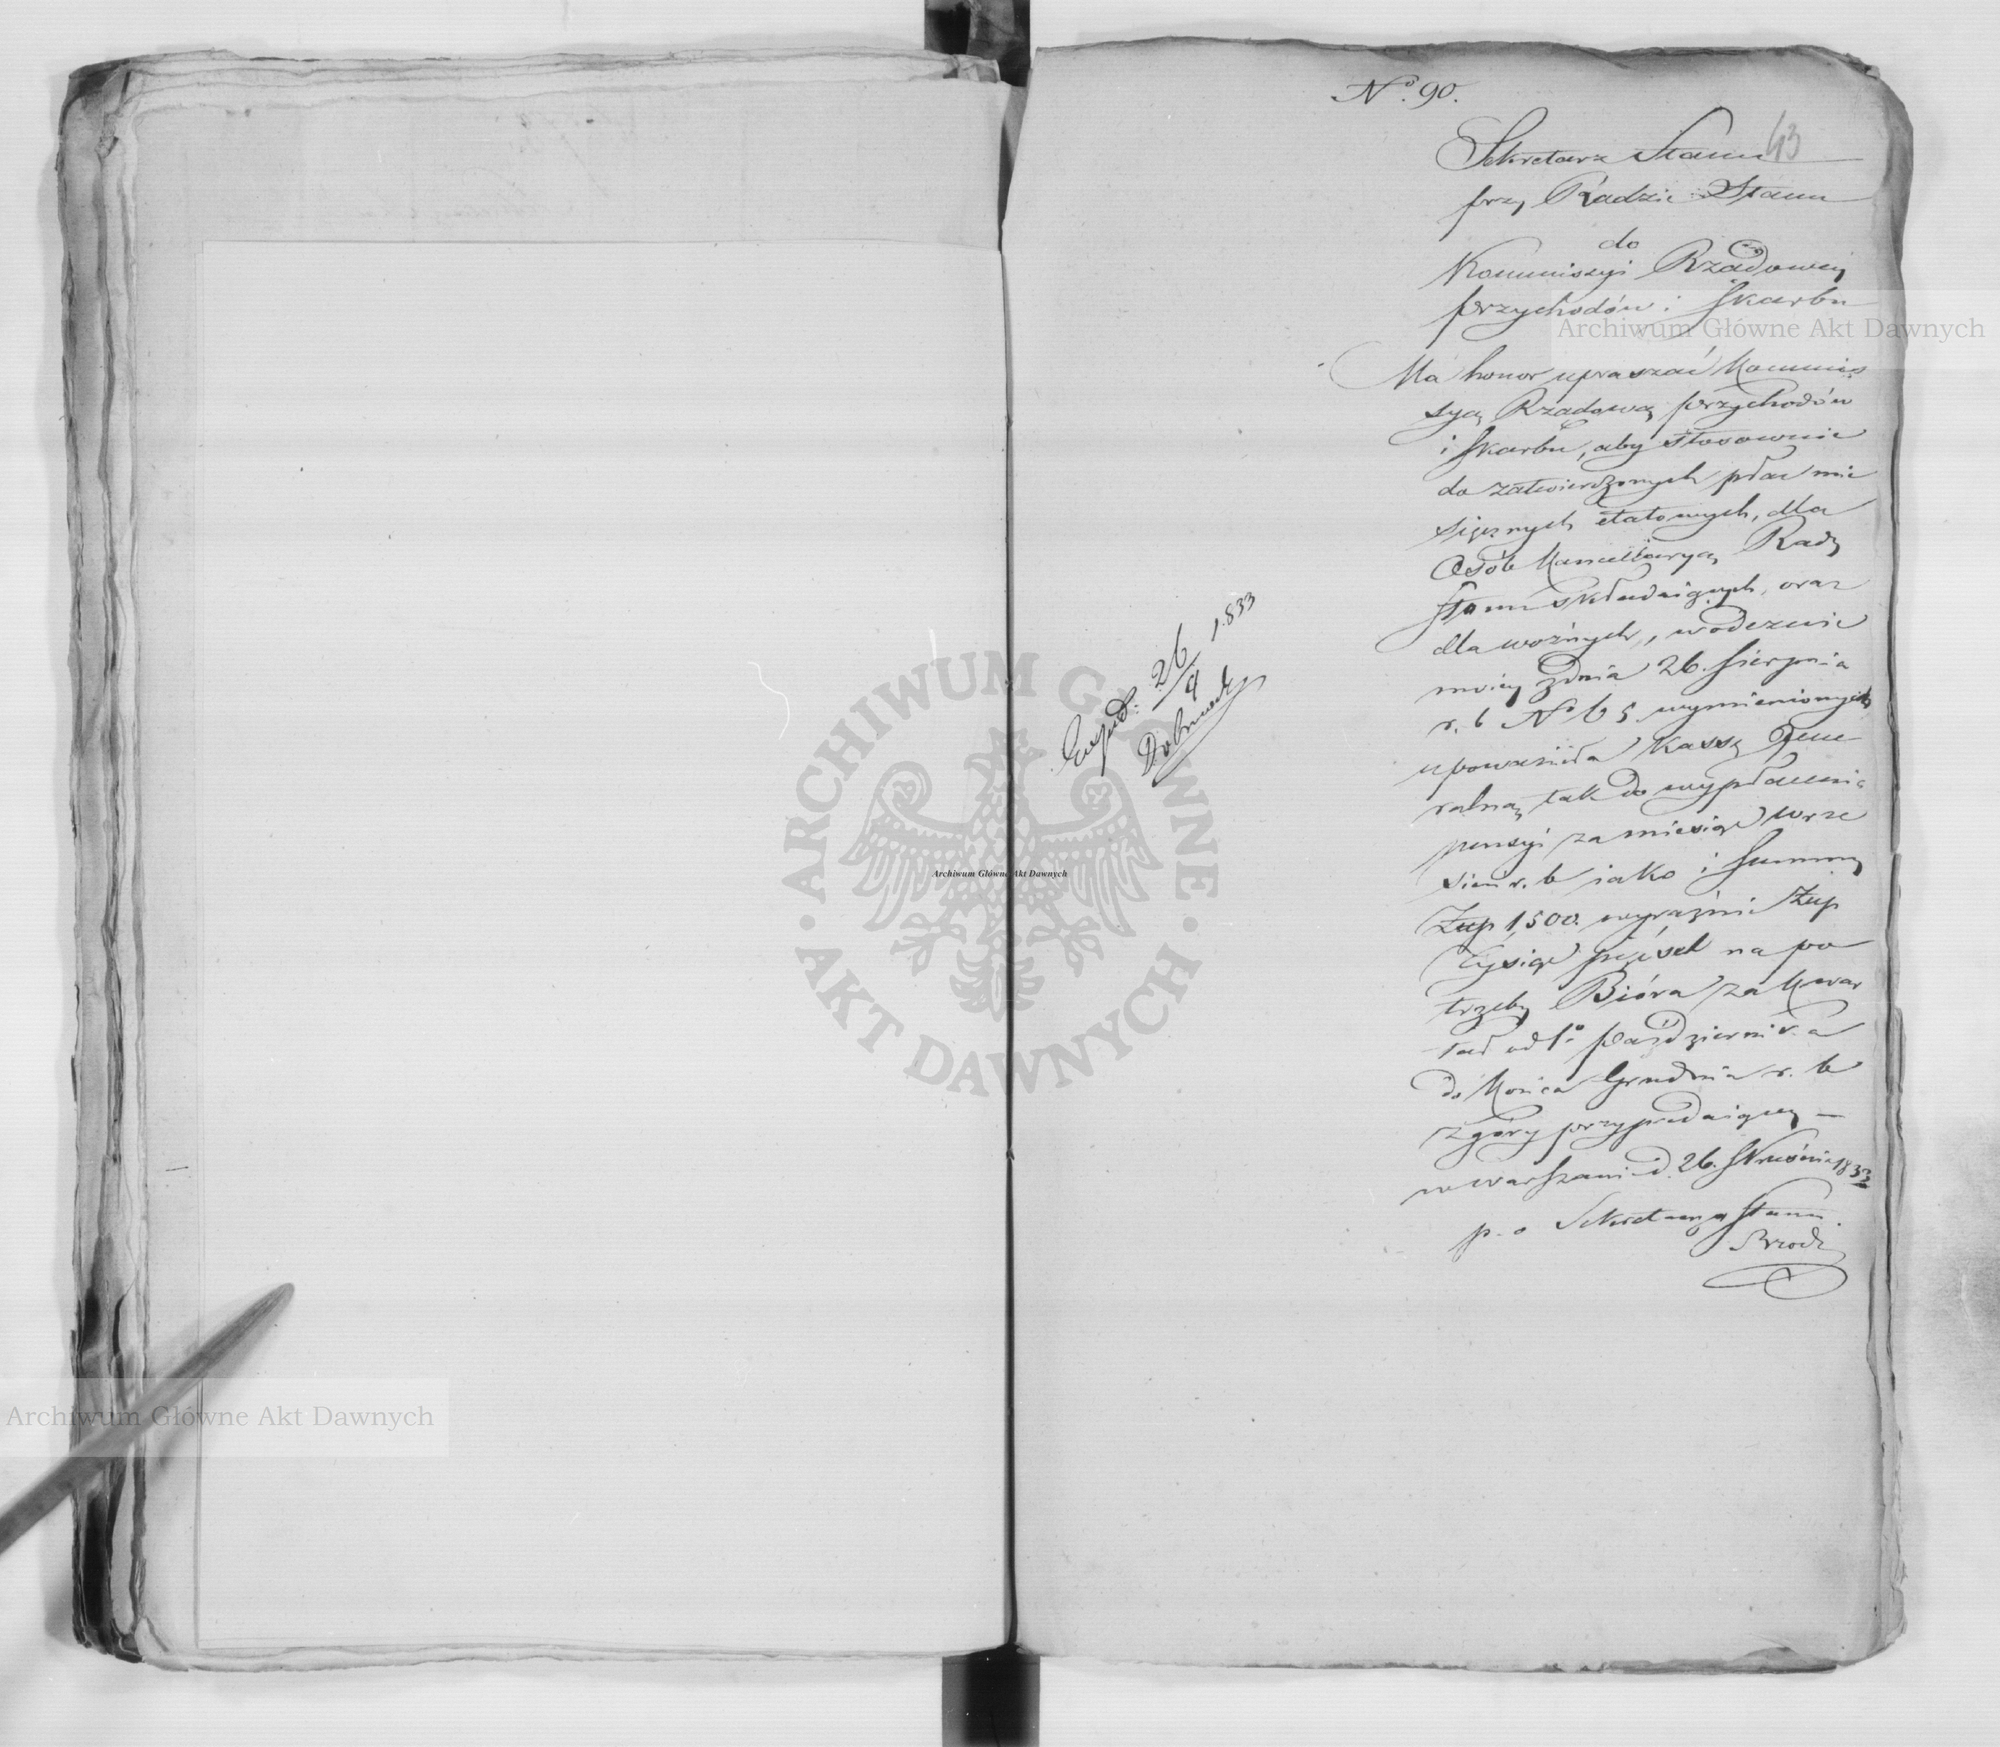 No. 90.
43
Sekretarz Stanu
przy Radzie Stanu
do
Kommissyi Rządowey
przychodów i Skarbu
Ma honor upraszać Kommis
syą Rządową przychodów
i Skarbu, aby stosownie
do zatwierdzonych płac mie
sięcznych etatowych, dla
Osób Kancellaryą Rady
Stanu składaiących, oraz
dla woźnych, w odezwie
moiey z dnia 26. Sierpnia
r. b No 65 wymienionych
upoważniła Kassę Gene
ralną tak do wypłacenia
pensyi za miesiąc wrze
sień r. b iako i Summy
Złp 1,500. wyraźnie Złp
Tysiąc pięćset na po
trzeby Bióra za kwar
tał od 1o października
do końca Grudnia r. b
z góry przypadaiącey —
w Warszawie d. 26. Września 1833
p. o Sekretarza Stanu.
Exped: 26/9 1.833
Archiwum Główne Akt Dawnych
Archiwum Główne Akt Dawnych
Archiwum Główne Akt Dawnych
· ARCHIWUM GŁÓWNE · AKT DAWNYCH